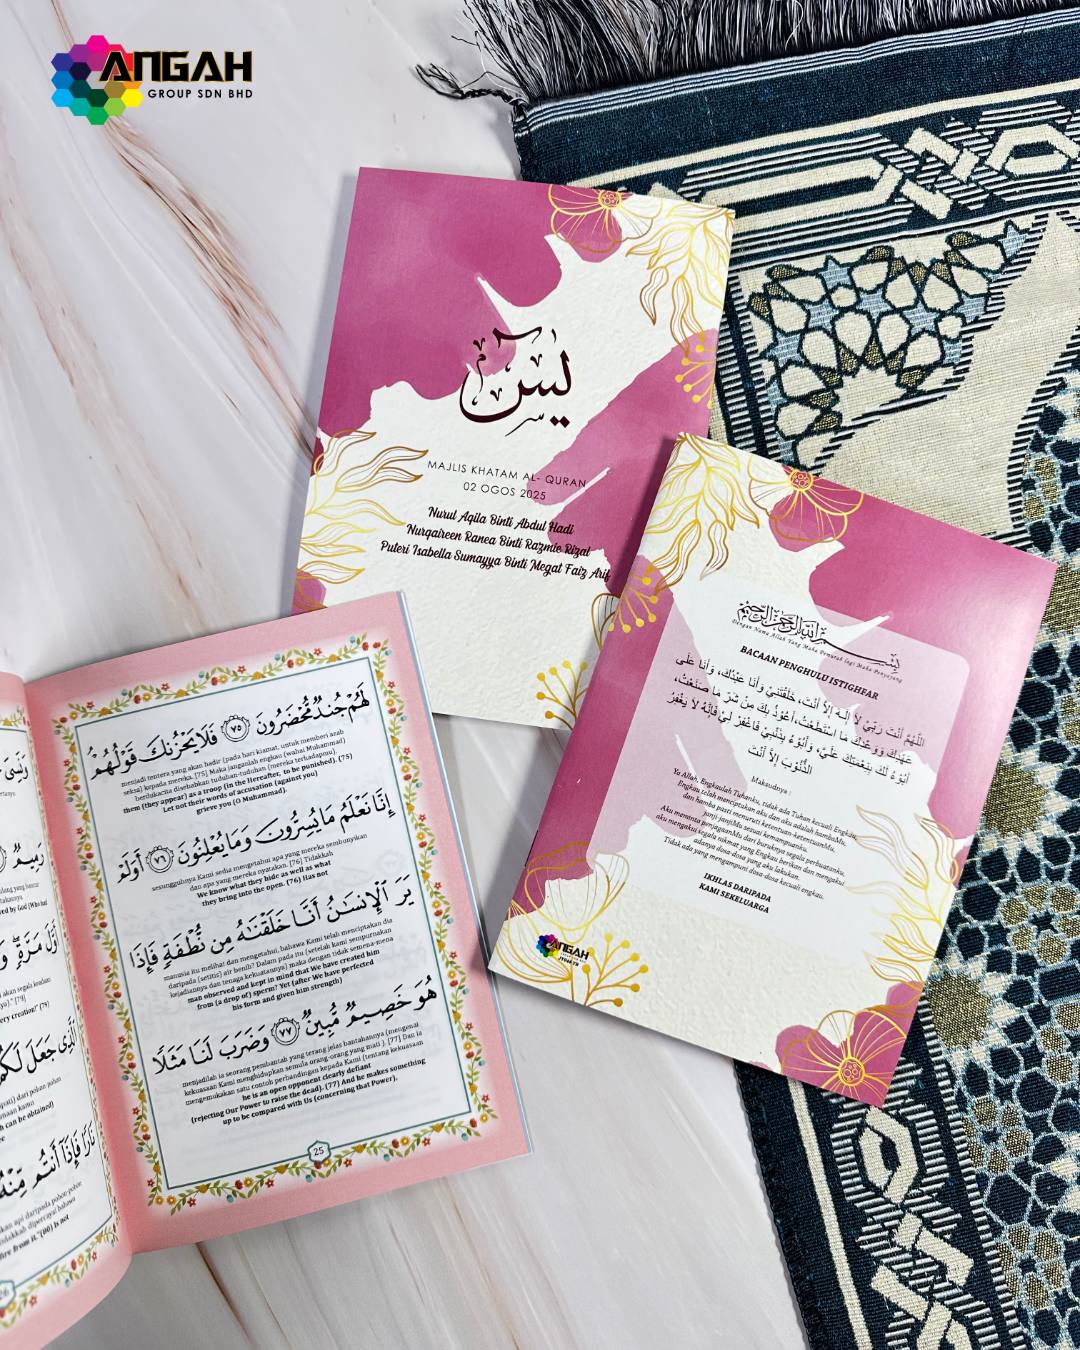 ANGAH
GROUP SDN BHD
يس
MAJLIS KHATAM AL- QURAN
02 OGOS 2025
Nurul Aqila Binti Abdul Hadi
Nurqaireen Ranea Binti Razmie Rizal
Puteri Isabella Sumayya Binti Megat Faiz Arif
بسم الله الرحمن الرحيم
Dengan Nama Allah Yang Maha Pemurah lagi Maha Penyayang
BACAAN PENGHULU ISTIGHFAR
اللَّهُمَّ أَنْتَ رَبِّيْ لاَ إِلَـهَ إِلاَّ أَنْتَ، خَلَقْتَنِيْ وَأَنَا عَبْدُكَ، وَأَنَا عَلَى
عَهْدِكَ وَوَعْدِكَ مَا اسْتَطَعْتُ، أَعُوْذُ بِكَ مِنْ شَرِّ مَا صَنَعْتُ،
أَبُوْءُ لَكَ بِنِعْمَتِكَ عَلَيَّ، وَأَبُوْءُ بِذَنْبِيْ فَاغْفِرْ لِيْ فَإِنَّهُ لاَ يَغْفِرُ
الذُّنُوْبَ إِلاَّ أَنْتَ
Maksudnya :
Ya Allah, Engkaulah Tuhanku, tidak ada Tuhan kecuali Engkau,
Engkau telah menciptakan aku dan aku adalah hambaMu,
dan hamba pasti menuruti ketentuan-ketentuanMu,
janji-janjiMu sesuai kemampuanku,
Aku meminta penjagaanMu dari buruknya segala perbuatanku,
aku mengakui segala nikmat yang Engkau berikan dan mengakui
adanya dosa dosa yang aku lakukan.
Tidak ada yang mengampuni dosa dosa kecuali engkau.
IKHLAS DARIPADA
KAMI SEKELUARGA
ANGAH
لَهُمْ جُندٌ مُّحْضَرُونَ ٧٥ فَلَا يَحْزُنكَ قَوْلُهُمْ
menjadi tentera yang akan hadir (pada hari kiamat, untuk memberi azab
seksa) kepada mereka. [75] Maka janganlah engkau (wahai Muhammad)
berdukacita disebabkan tuduhan-tuduhan (mereka terhadapmu).
them (they appear) as a troop (in the Hereafter, to be punished). (75)
Let not their words of accusation (against you)
grieve you (O Muhammad).
إِنَّا نَعْلَمُ مَا يُسِرُّونَ وَمَا يُعْلِنُونَ ٧٦ أَوَلَمْ
sesungguhnya Kami sedia mengetahui apa yang mereka sembunyikan
dan apa yang mereka nyatakan. [76] Tidakkah
We know what they hide as well as what
they bring into the open. (76) Has not
يَرَ الْإِنسَٰنُ أَنَّا خَلَقْنَٰهُ مِن نُّطْفَةٍ فَإِذَا
manusia itu melihat dan mengetahui, bahawa Kami telah menciptakan dia
daripada (setitis) air benih? Dalam pada itu (setelah kami sempurnakan
kejadiannya dan tenaga kekuatannya) maka dengan tidak semena-mena
man observed and kept in mind that We have created him
from (a drop of) sperm? Yet (after We have perfected
his form and given him strength)
هُوَ خَصِيمٌ مُّبِينٌ ٧٧ وَضَرَبَ لَنَا مَثَلًا
menjadilah ia seorang pembantah yang terang jelas bantahannya (mengenai
kekuasaan Kami menghidupkan semula orang-orang yang mati ). [77] Dan ia
mengemukakan satu contoh perbandingan kepada Kami (tentang kekuasaan
he is an open opponent clearly defiant
(rejecting Our Power to raise the dead). (77) And he makes something
up to be compared with Us (concerning that Power).
25
رَمِيمٌ
ed by God (Who had
أَوَّلَ مَرَّةٍ
akan segala keadaan
." [79]
ery creation!" (79)
الَّذِى جَعَلَ لَكُم
dari pohon pohon
ch can be obtained)
نَارًا فَإِذَا أَنتُم مِّنْهُ
kan api daripada pohon-pohon
fire from it."(80) Is not
26